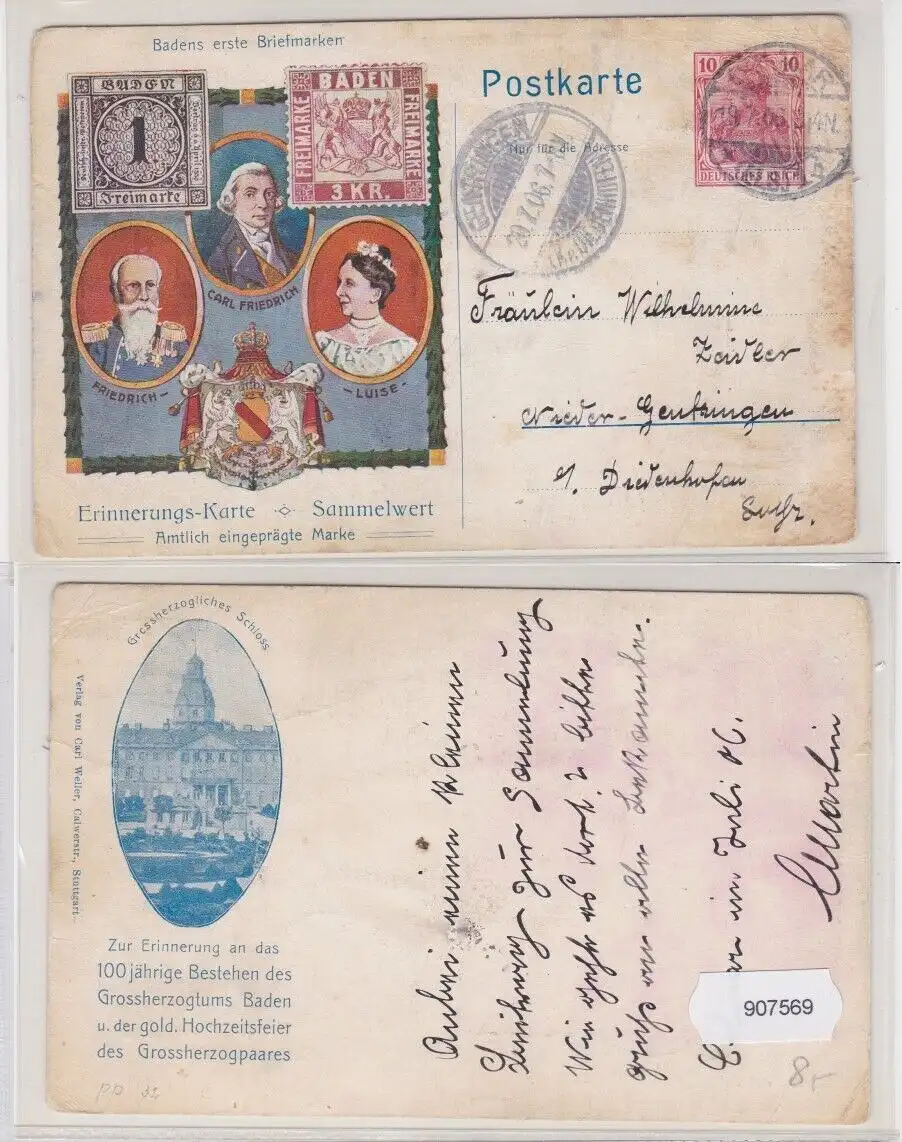 Badens erste Briefmarken
BADEN
1
Freimarke
BADEN
FREIMARKE
FREIMARKE
3 KR.
CARL FRIEDRICH
FRIEDRICH
LUISE
Erinnerungs-Karte Sammelwert
Amtlich eingeprägte Marke
Postkarte
Nur für die Adresse
10 10
DEUTSCHES REICH
20.7.06.7-8V
Fräulein Wilhelmine
Zeidler
Nieder-Gentringen
b. Diedenhofen
Lothr.
Grossherzogliches Schloss
Verlag von Carl Weller, Calwerstr., Stuttgart.
Zur Erinnerung an das
100jährige Bestehen des
Grossherzogtums Baden
u. der gold. Hochzeitsfeier
des Grossherzogpaares
Anbei einen kleinen
Beitrag zur Sammlung
Wie geht es dort? bitte
Gruß an alle Bekannte.
im Juli 06.
Martin
907569
8,-